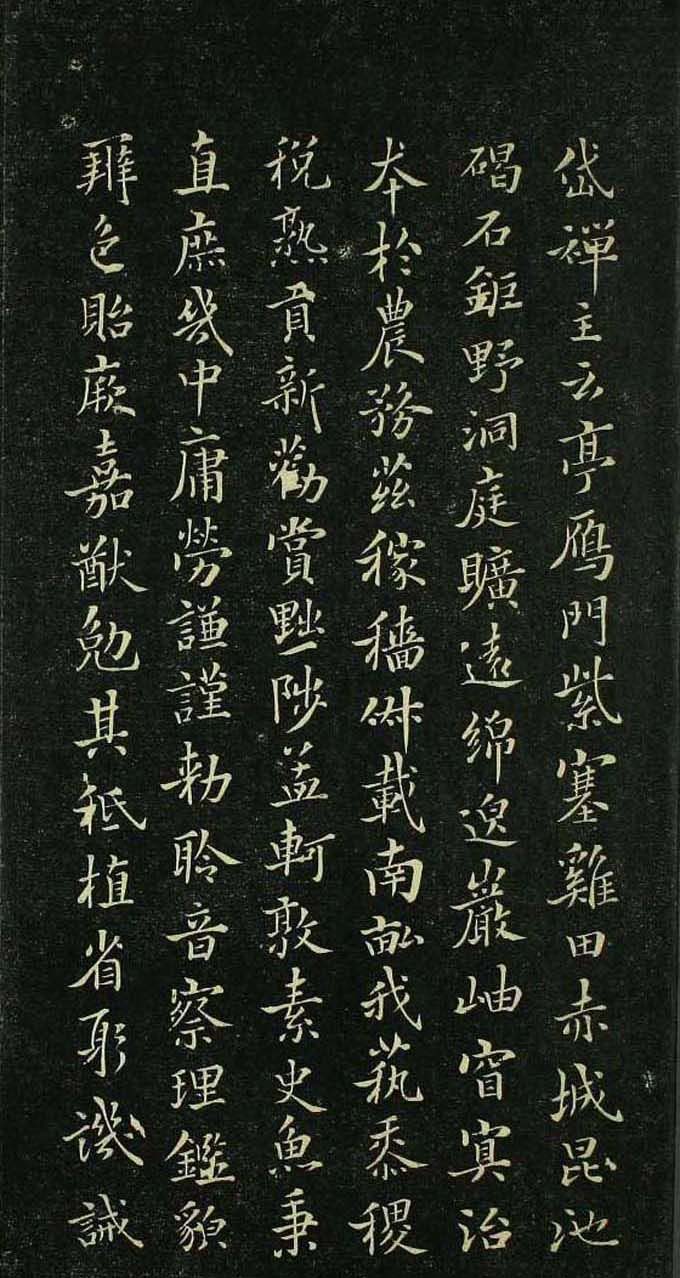 岱禪主云亭鴈門紫塞雞田赤城昆池
碣石鉅野洞庭曠遠綿邈巖岫窅冥治
本於農務茲稼穡俶載南畝我蓺黍稷
稅熟貢新勸賞黜陟孟軻敦素史魚秉
直庶幾中庸勞謙謹勅聆音察理鑑貌
辨色貽厥嘉猷勉其祗植省躬譏誡